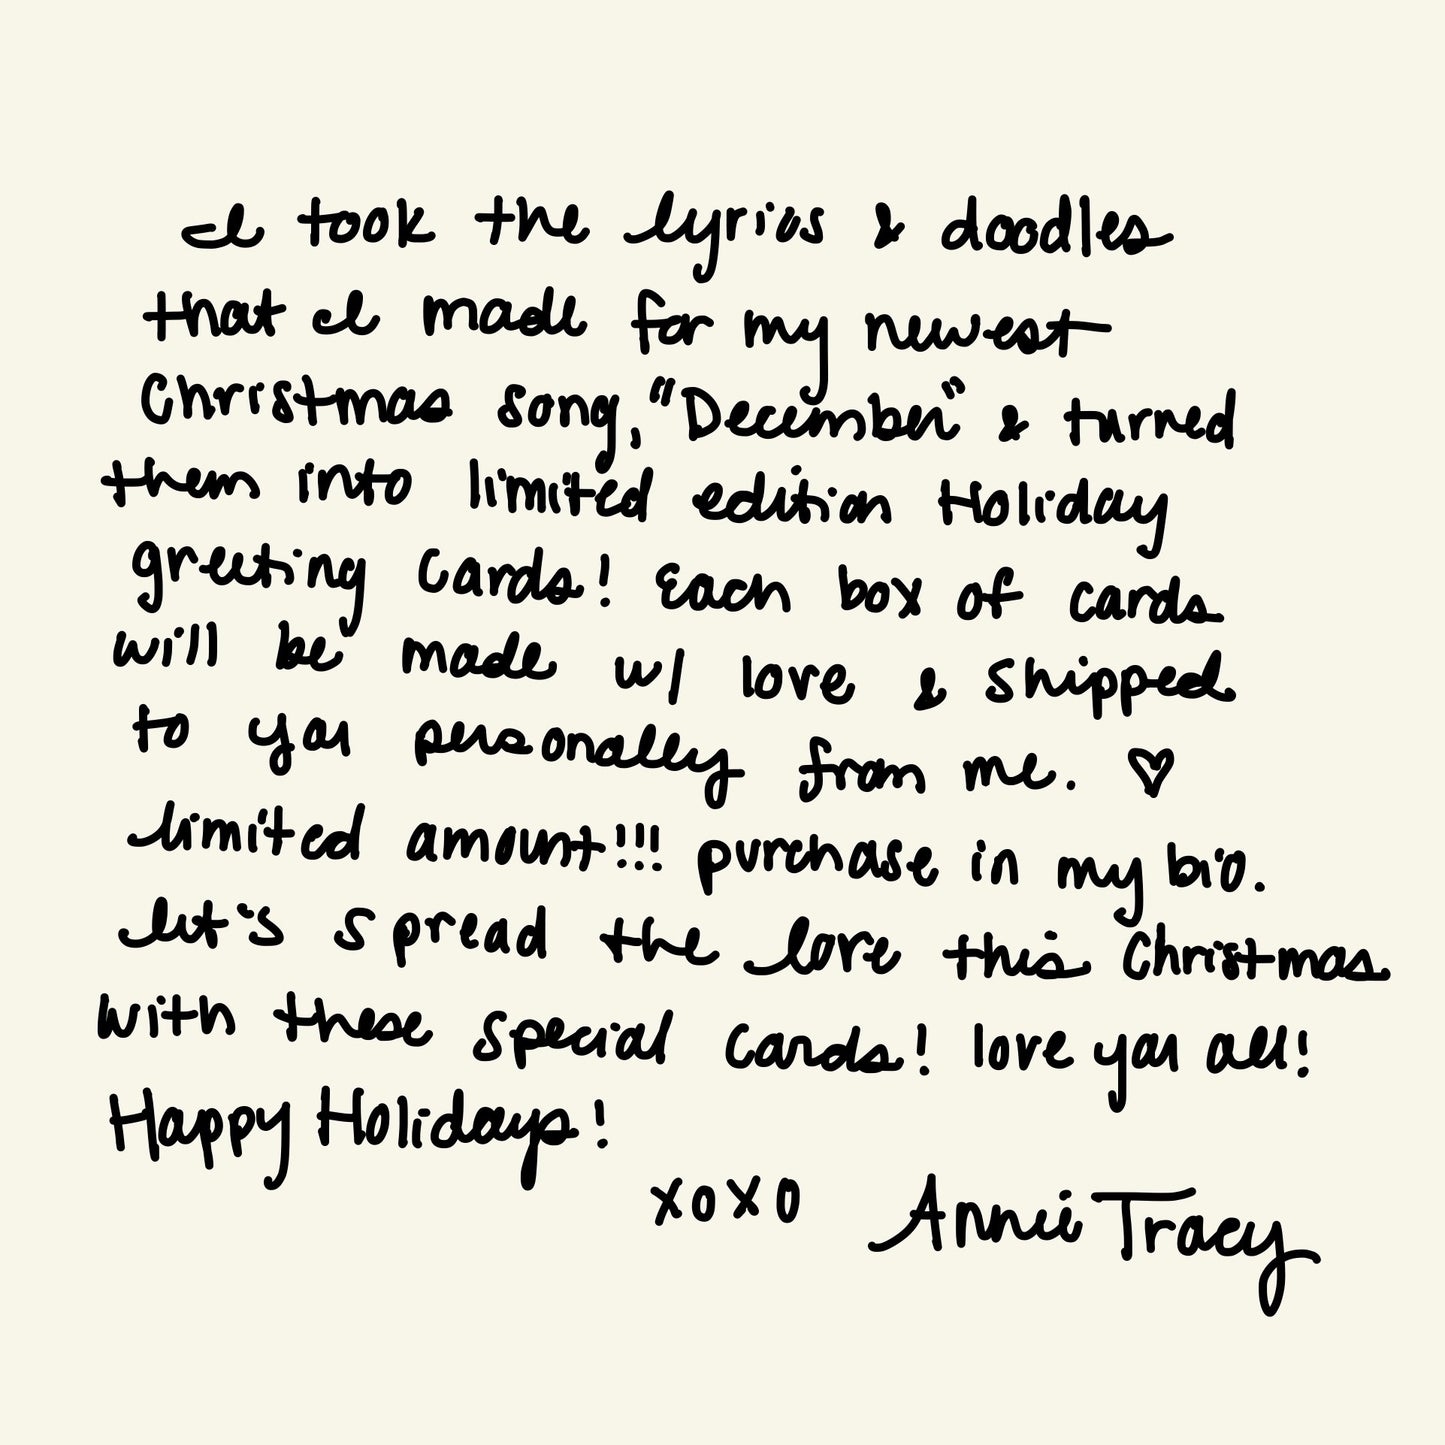 I took the lyrics & doodles
that I made for my newest
Christmas song, "December" & turned
them into limited edition Holiday
greeting cards! Each box of cards
will be made w/ love & shipped
to you personally from me. ♡
limited amount!!! purchase in my bio.
let's spread the love this Christmas
with these special cards! love you all!
Happy Holidays!
xoxo Annie Tracy